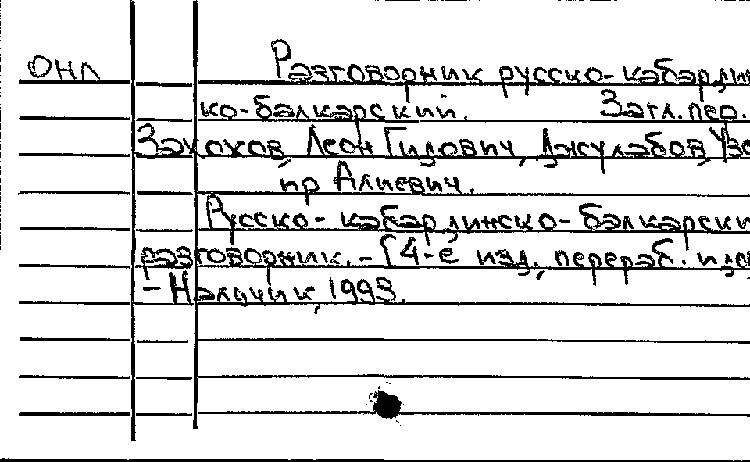 ОНЛ
Разговорник русско-кабардин
ко-балкарский. Загл. пер.
Захохов, Леон Гидович, Джулабов, Узе
ир Алиевич.
Русско-кабардинско-балкарски
разговорник. - [4-е изд., перераб. и до
- Нальчик, 1993.